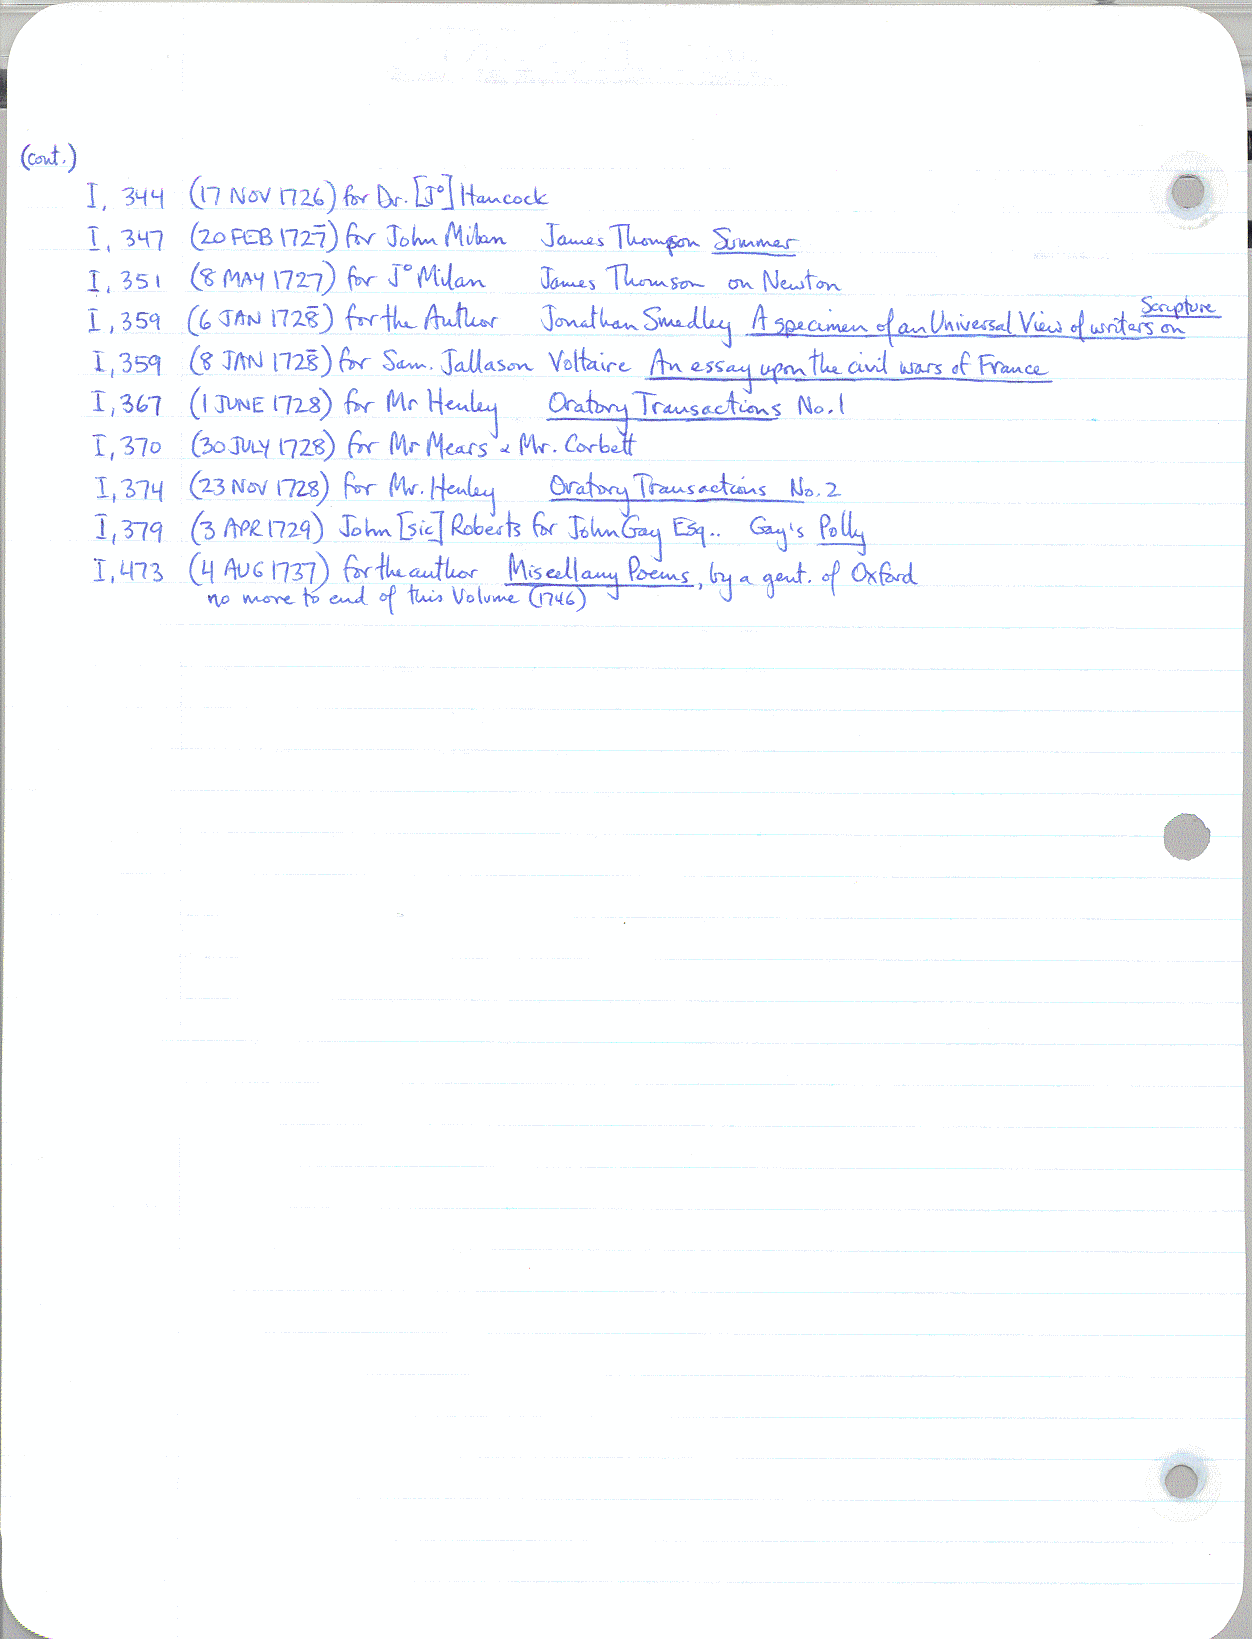 (cont.)
I, 344 (17 NOV 1726) for Dr. [Jº] Hancock
I, 347 (20 FEB 1727̅) for John Milan James Thompson Summer
I, 351 (8 MAY 1727) for Jº Milan James Thomson on Newton
Scripture
I, 359 (6 JAN 1728̅) for the Author Jonathan Smedley A specimen of an Universal View of writers on
I, 359 (8 JAN 1728̅) for Sam. Jallason Voltaire An essay upon the civil wars of France
I, 367 (1 JUNE 1728) for Mr Henley Oratory Transactions No. 1
I, 370 (30 JULY 1728) for Mr Mears & Mr. Corbett
I, 374 (23 NOV 1728) for Mr. Henley Oratory Transactions No. 2
I, 379 (3 APR 1729) John [sic] Roberts for John Gay Esq.. Gay's Polly
I, 473 (4 AUG 1737) for the author Miscellany Poems, by a gent. of Oxford
no more to end of this Volume (1746)